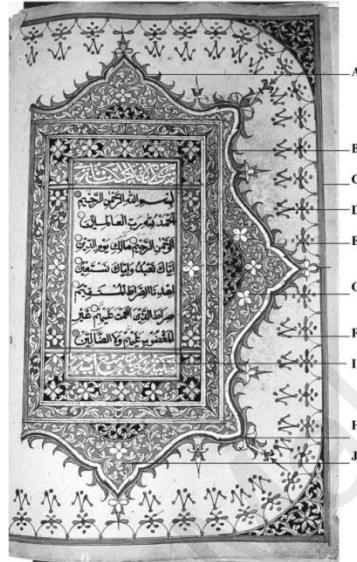 A
بسم الله الرحمن الرحيم
الحمد لله رب العالمين
الرحمن الرحيم مالك يوم الدين
اياك نعبد واياك نستعين
اهدنا الصراط المستقيم
صراط الذين انعمت عليهم غير
المغضوب عليهم ولا الضالين
D
I
H
J